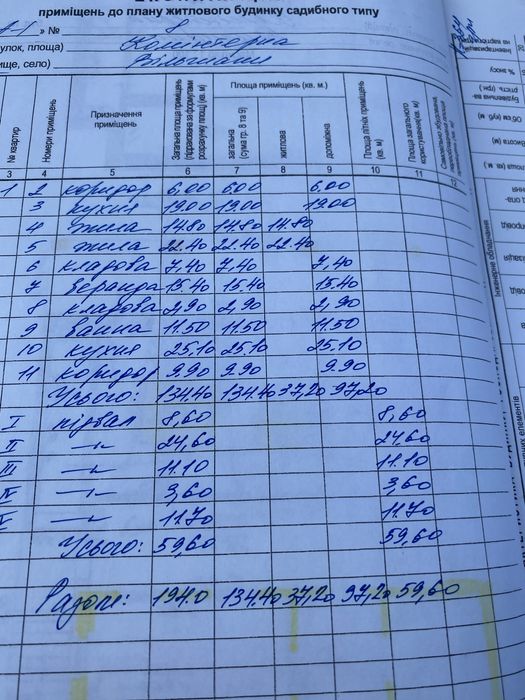 приміщень до плану житлового будинку садибного типу
» № 8
улок, площа) Комінтерна
ище, село) Вільшани
№ квартир
Номери приміщень
Призначення приміщень
Загальна площа приміщень (підрахована за формулами розрахунку площ) (кв. м)
Площа приміщень (кв. м.)
загальна (сума гр. 8 та 9)
житлова
допоміжна
Площа літніх приміщень (кв. м)
Площа загального користування (кв. м)
3 4 5 6 7 8 9 10 11 12
1 2 коридор 6,00 6.00 6.00
3 кухня 19.00 19.00 19.00
4 жила 14.80 14.80 14.80
5 жила 22.40 22.40 22.40
6 кладова 7,40 7,40 7,40
7 веранда 15.40 15.40 15.40
8 кладова 2,90 2,90 2,90
9 ванна 11.50 11.50 11.50
10 кухня 25.10 25.10 25.10
11 коридор 9.90 9.90 9.90
Усього: 134.40 134.40 37,20 97,20
I підвал 8,60 8,60
II —〃— 24,60 24,60
III —〃— 11.10 11.10
IV —〃— 3,60 3,60
V —〃— 11.70 11.70
Усього: 59,60 59,60
Разом: 194.0 134.40 37,20 97,20 59,60